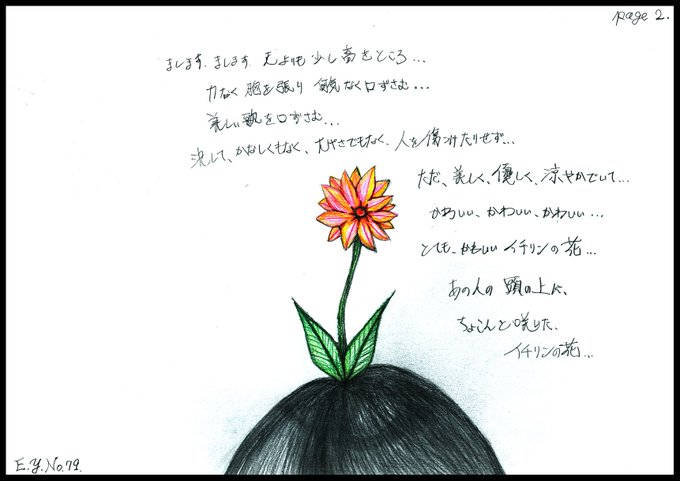 page 2.
まします、まします、
少し高きところ...
力なく 胸を張り なく口ずさむ...
美しい歌を口ずさむ...
決して、かなしくもなく、でもなく、人を傷つけたりせず...
ただ、美しく、優しく、涼やかでいて...
かわいい、かわいい、かわいい...
とても、かわいい イチリンの花...
あの人の 頭の上に、
ちょこんと咲いた、
イチリンの花...
E.Y.No.79.